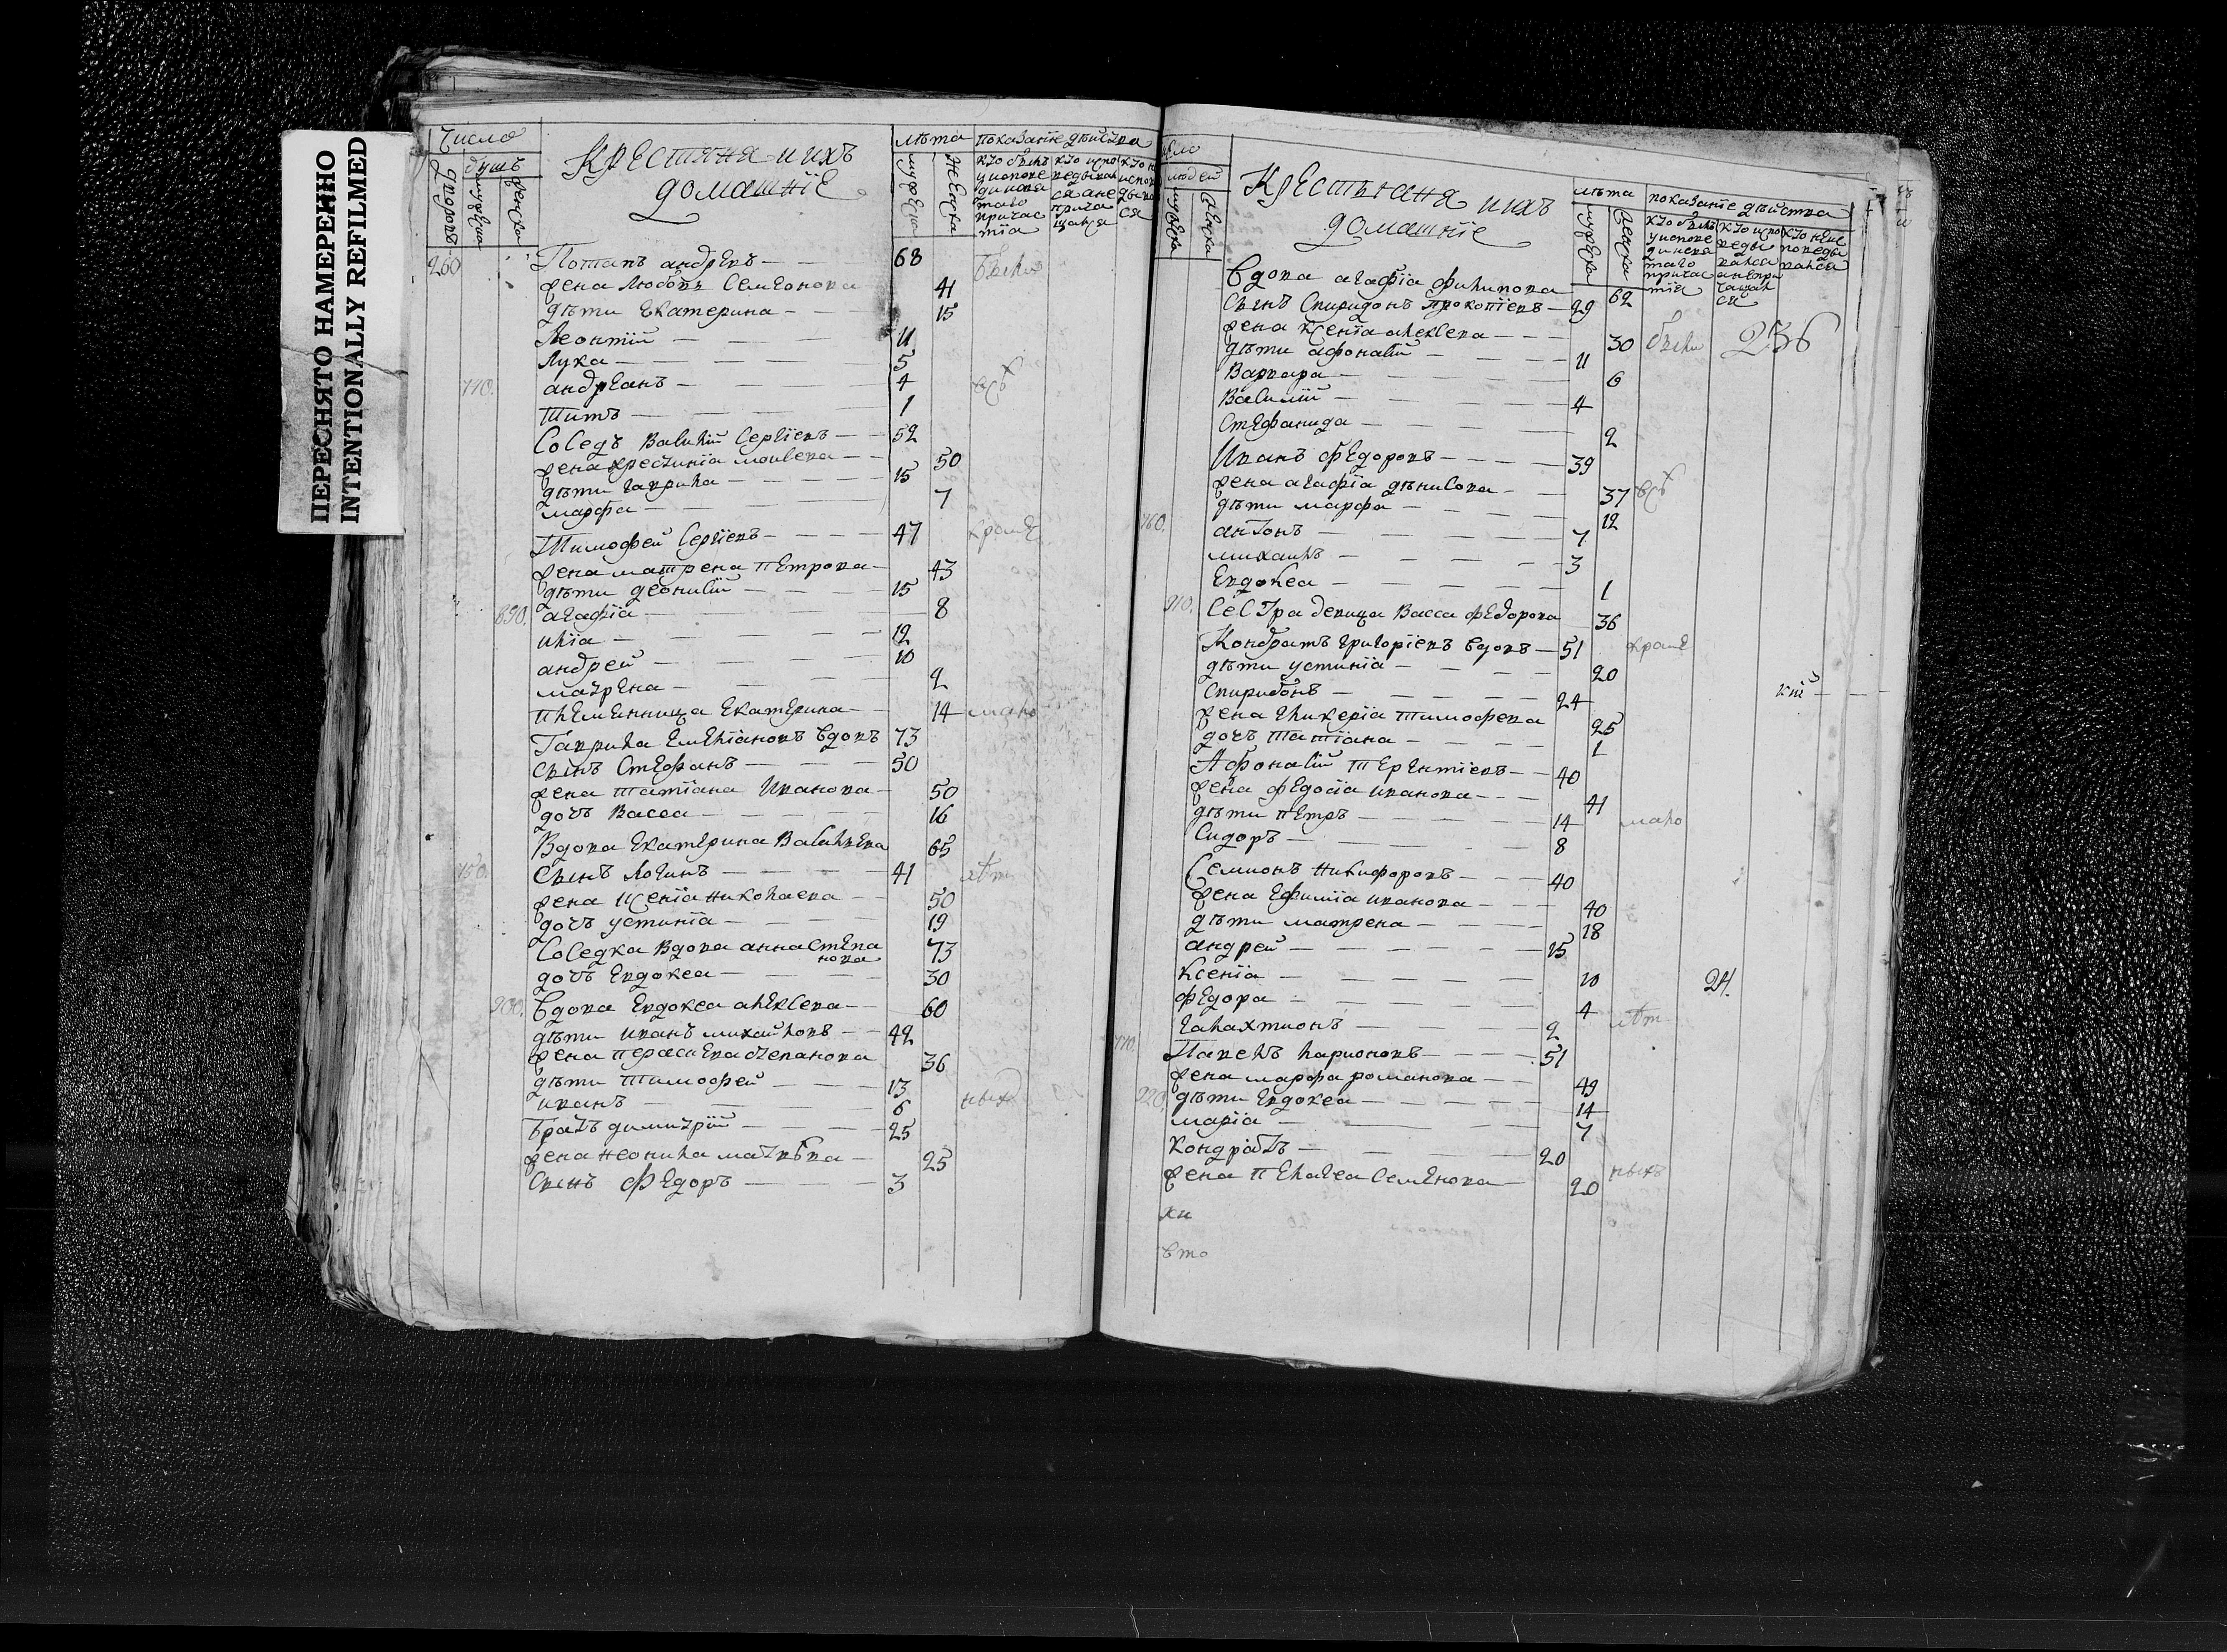 ПЕРЕСНЯТО НАМЕРЕННО
INTENTIONALLY REFILMED
Число
дворовъ
душъ
мужеска
женска
Крестяня и ихъ
домашнïе
лѣта
мужеска
женска
показанïе дѣйства
кто былъ
у исповѣ
ди и свя
таго
причас
тïя
кто испо
ведывал
ся а не
прича
щался
260
Потапъ андревъ 68
были
жена Любовь Семïонова 41
дѣти Екатерина 15
Леонтïй 11
Лука 5
710.
андрѣанъ 4
всѣ
Титъ 1
Соседъ Василïй Сергïевъ 52
жена христинïа моисева 50
дѣти гаврила 15
марфа 7
Тимофей Сергïевъ 47
кромѣ
жена матрена Петрова 43
дѣти деонисïй 15
890.
агафïа 8
илïа 12
андрей 10
матрена 2
племянница Екатерина 14
мало
Гаврила Емелïановъ вдовъ 73
Сынъ Стефанъ 50
жена татïана Иванова 50
дочъ Васса 16
Вдова Екатерина Васильева 65
750.
Сынъ Логинъ 41
лѣт
жена ксенïа николаева 50
дочъ устинïа 19
Соседка вдова анна степа
нова 73
дочъ Евдокеа 30
900.
Вдова Евдокеа алексева 60
дѣти иванъ михайловъ 42
жена параскева степанова 36
дѣти тимофей 13
иванъ 6
ныхъ
братъ димитрïй 25
жена неонила матвѣва 25
Сынъ Федоръ 3
людей
мужска
женска
Крестьяня и ихъ
домашнïе
лѣта
мужеска
женска
показанïе дѣйства
кто былъ
у испове
ди и свя
таго
причас
тïя
кто испо
веды
вался
а не при
чащал
ся
кто не ис
поведы
вался
Вдова агафïа филипова 62
Сынъ Спиридонъ Прокопïевъ 29
жена ксенïа алексева 30
были
236
дѣти афонасïй 11
Варвара 6
Василïй 4
Стефанида 2
Иванъ Федоровъ 39
жена агафïа дѣнисова 37
всѣ
дѣти марфа 12
760.
антонъ 7
михаилъ 3
Евдокеа 1
910.
Сестра девица васса федорова 36
Кондратъ григорïевъ вдовъ 51
кромѣ
дѣти устинïа 20
Спиридонъ 24
жена гликерïа тимофева 25
дочъ татïана 1
Афонасïй терентïевъ 40
жена федосïа иванова 41
дѣти петръ 14
мало
Сидоръ 8
Семионъ никифоровъ 40
жена Ефимïа иванова 40
дѣти матрена 18
андрей 15
ксенïа 10
24.
федора 4
лѣт
галахтионъ 2
770.
Павелъ ларионовъ 51
жена марфа романова 49
920.
дѣти Евдокеа 14
марïа 7
кондратъ 20
жена пелагеа семенова 20
ныхъ